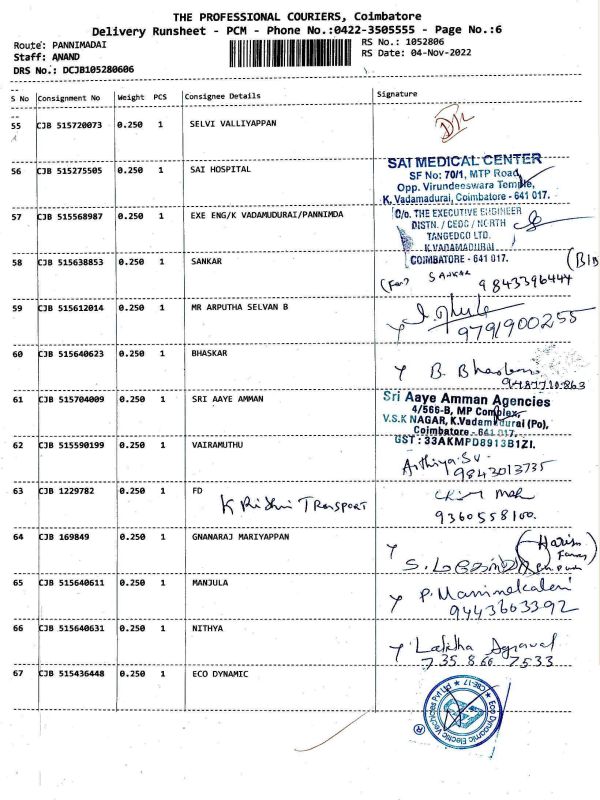 THE PROFESSIONAL COURIERS, Coimbatore
Delivery Runsheet - PCM - Phone No.:0422-3505555 - Page No.:6
Route: PANNIMADAI
RS No.: 1052806
Staff: ANAND
RS Date: 04-Nov-2022
DRS No.: DCJB105280606
S No Consignment No Weight PCS Consignee Details Signature
55 CJB 515720073 0.250 1 SELVI VALLIYAPPAN
56 CJB 515275505 0.250 1 SAI HOSPITAL
SAI MEDICAL CENTER
SF No: 70/1, MTP Road,
Opp. Virundeeswara Temple,
K. Vadamadurai, Coimbatore - 641 017.
57 CJB 515568987 0.250 1 EXE ENG/K VADAMUDURAI/PANNIMDA
O/o. THE EXECUTIVE ENGINEER
DISTN. / CEDC / NORTH
TANGEDCO LTD.
K.VADAMADURAI
COIMBATORE - 641 017.
58 CJB 515638853 0.250 1 SANKAR
(For) SANKAR
9843396444
59 CJB 515612014 0.250 1 MR ARPUTHA SELVAN B
9791900255
60 CJB 515640623 0.250 1 BHASKAR
B.
61 CJB 515704009 0.250 1 SRI AAYE AMMAN
Sri Aaye Amman Agencies
4/566-B, MP Complex,
V.S.K NAGAR, K.Vadamadurai (Po),
Coimbatore - 641 017.
GST : 33AKMPD8913B1ZI.
62 CJB 515590199 0.250 1 VAIRAMUTHU
9843013735
63 CJB 1229782 0.250 1 FD
TRANSPORT
9360558100.
64 CJB 169849 0.250 1 GNANARAJ MARIYAPPAN
65 CJB 515640611 0.250 1 MANJULA
9443603392
66 CJB 515640631 0.250 1 NITHYA
Lalitha Agrawal
735 866 7533
67 CJB 515436448 0.250 1 ECO DYNAMIC
Eco Dynamic Electric Vechicles Pvt Ltd ★ CBE-17 ★